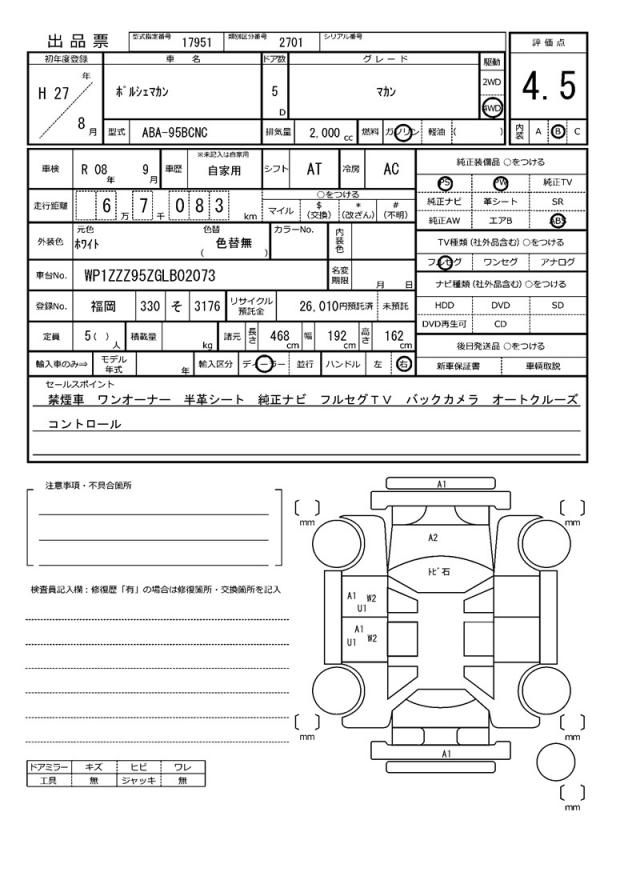 出品票 型式指定番号 17951 類別区分番号 2701 シリアル番号
評価点
4.5
内装 A B C
初年度登録 車名 ドア数 グレード 駆動
H 27 年 8 月 ポルシェマカン 5 D マカン 2WD 4WD
型式 ABA-95BCNC 排気量 2,000 cc 燃料 ガソリン 軽油 ( )
車検 R 08 年 9 月 車歴 ※未記入は自家用 自家用 シフト AT 冷房 AC
走行距離 6 万 7 千 0 8 3 km
○をつける
マイル $ (交換) * (改ざん) # (不明)
外装色 元色 ホワイト 色替 ( 色替無 ) カラーNo. 内装色
車台No. WP1ZZZ95ZGLB02073 名変期限 月 日
登録No. 福岡 330 そ 3176 リサイクル預託金 26,010円預託済 未預託
定員 5( ) 人 積載量 kg 諸元 長さ 468 cm 幅 192 cm 高さ 162 cm
輸入車のみ⇒ モデル年式 年 輸入区分 ディーラー 並行 ハンドル 左 右
純正装備品 ○をつける
PS PW 純正TV
純正ナビ 革シート SR
純正AW エアB ABS
TV種類 (社外品含む) ○をつける
フルセグ ワンセグ アナログ
ナビ種類 (社外品含む) ○をつける
HDD DVD SD
DVD再生可 CD
後日発送品 ○をつける
新車保証書 車輌取説
セールスポイント
禁煙車 ワンオーナー 半革シート 純正ナビ フルセグTV バックカメラ オートクルーズ
コントロール
注意事項・不具合箇所
検査員記入欄:修復歴「有」の場合は修復箇所・交換箇所を記入
ドアミラー キズ ヒビ ワレ
工具 無 ジャッキ 無
A1
mm
mm
A2
トビ石
A1 W2
U1
A1
U1 W2
mm
mm
A1
mm